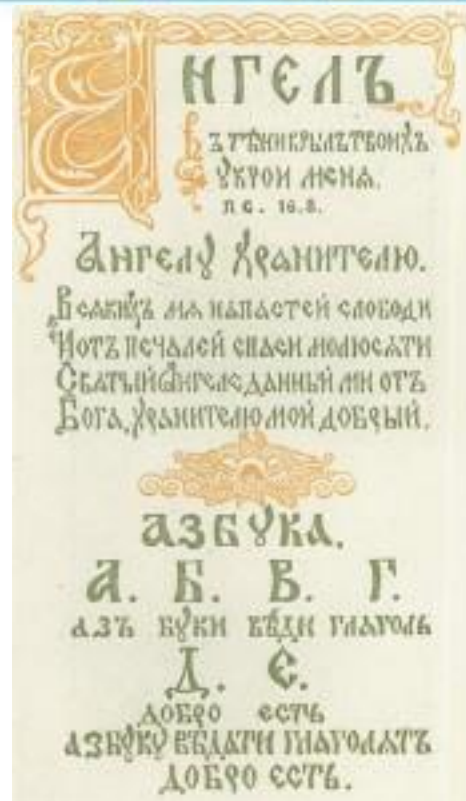 АНГЕЛЪ
ВЪ ТѢНИ КРЫЛЪ ТВОИХЪ
УКРОИ МЕНЯ.
ПС. 16.8.
Ангелу Хранителю.
Всякихъ мя напастей слободи
И отъ печалей спаси молюсяти
Святый Ангеле данный ми отъ
Бога, Хранителю мой добрый.
АЗБУКА.
А. Б. В. Г.
АЗЪ БУКИ ВѢДИ ГЛАГОЛЬ
Д. Є.
ДОБРО ЕСТЬ
АЗБУКУ ВѢДАТИ ГЛАГОЛЯТЪ
ДОБРО ЕСТЬ.